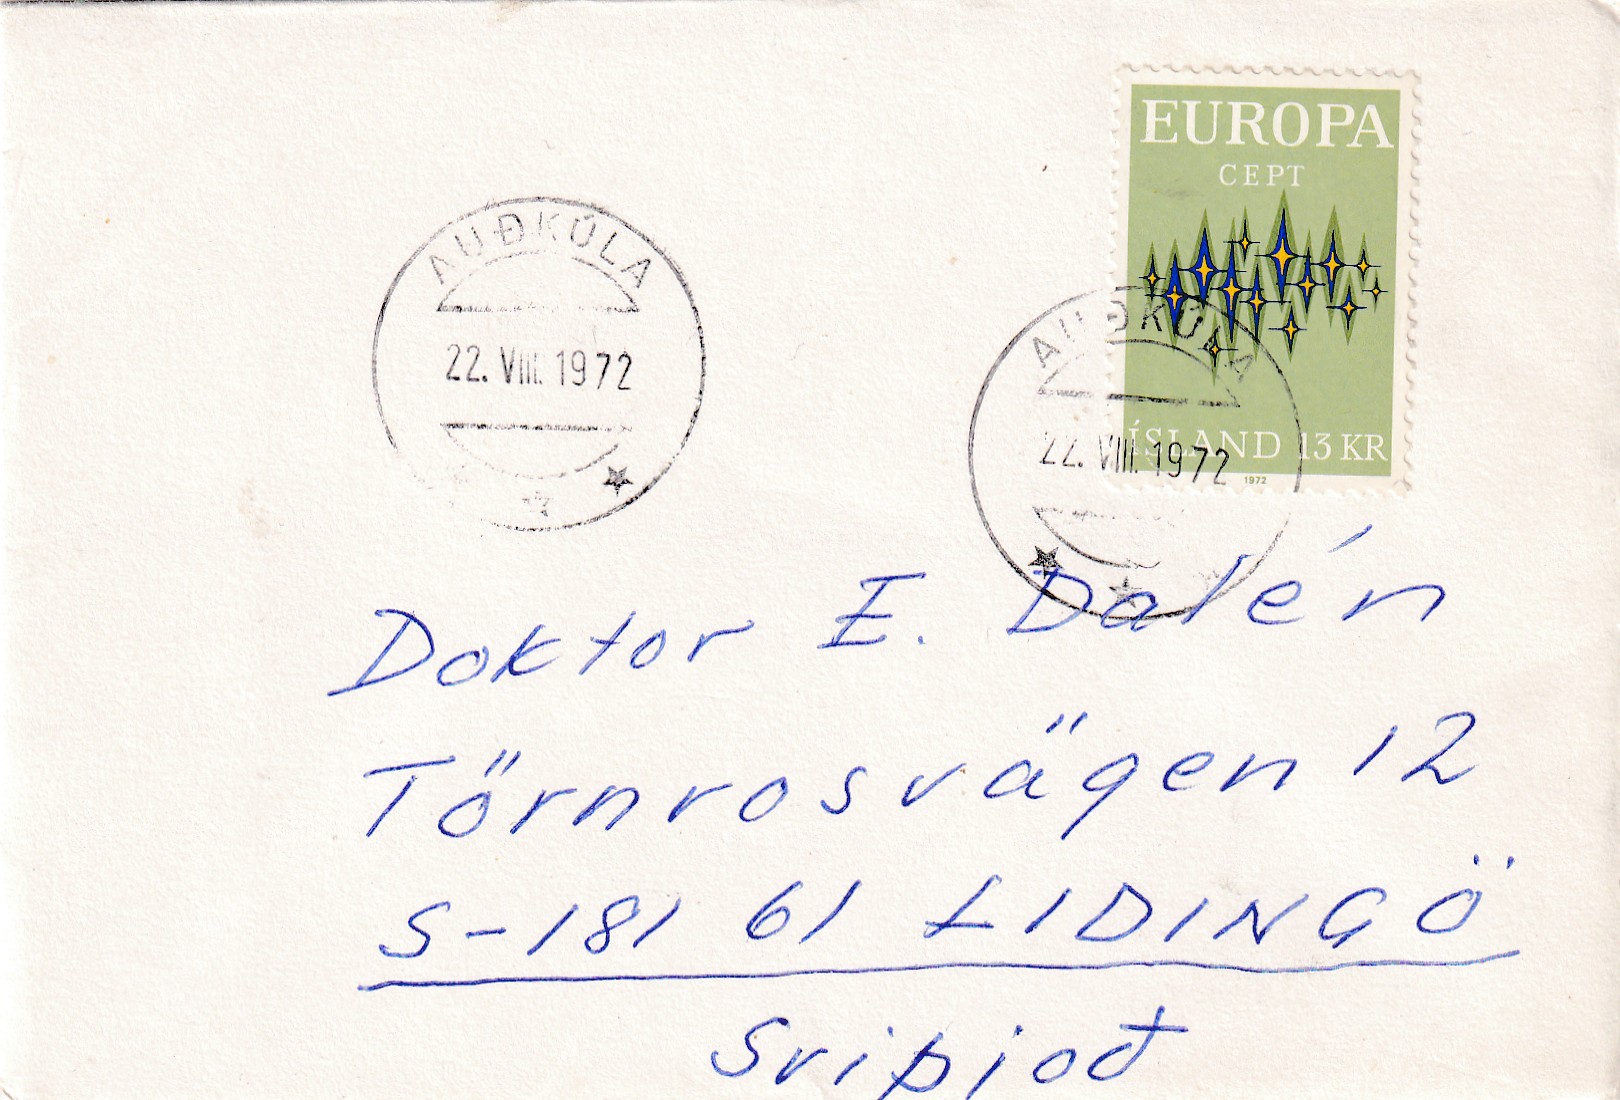 EUROPA
CEPT
ÍSLAND 13 KR
1972
AUÐKÚLA
22. VIII. 1972
AUÐKÚLA
22. VIII. 1972
Doktor E. Dalén
Törnrosvägen 12
S-181 61 LIDINGÖ
Sviþjoð